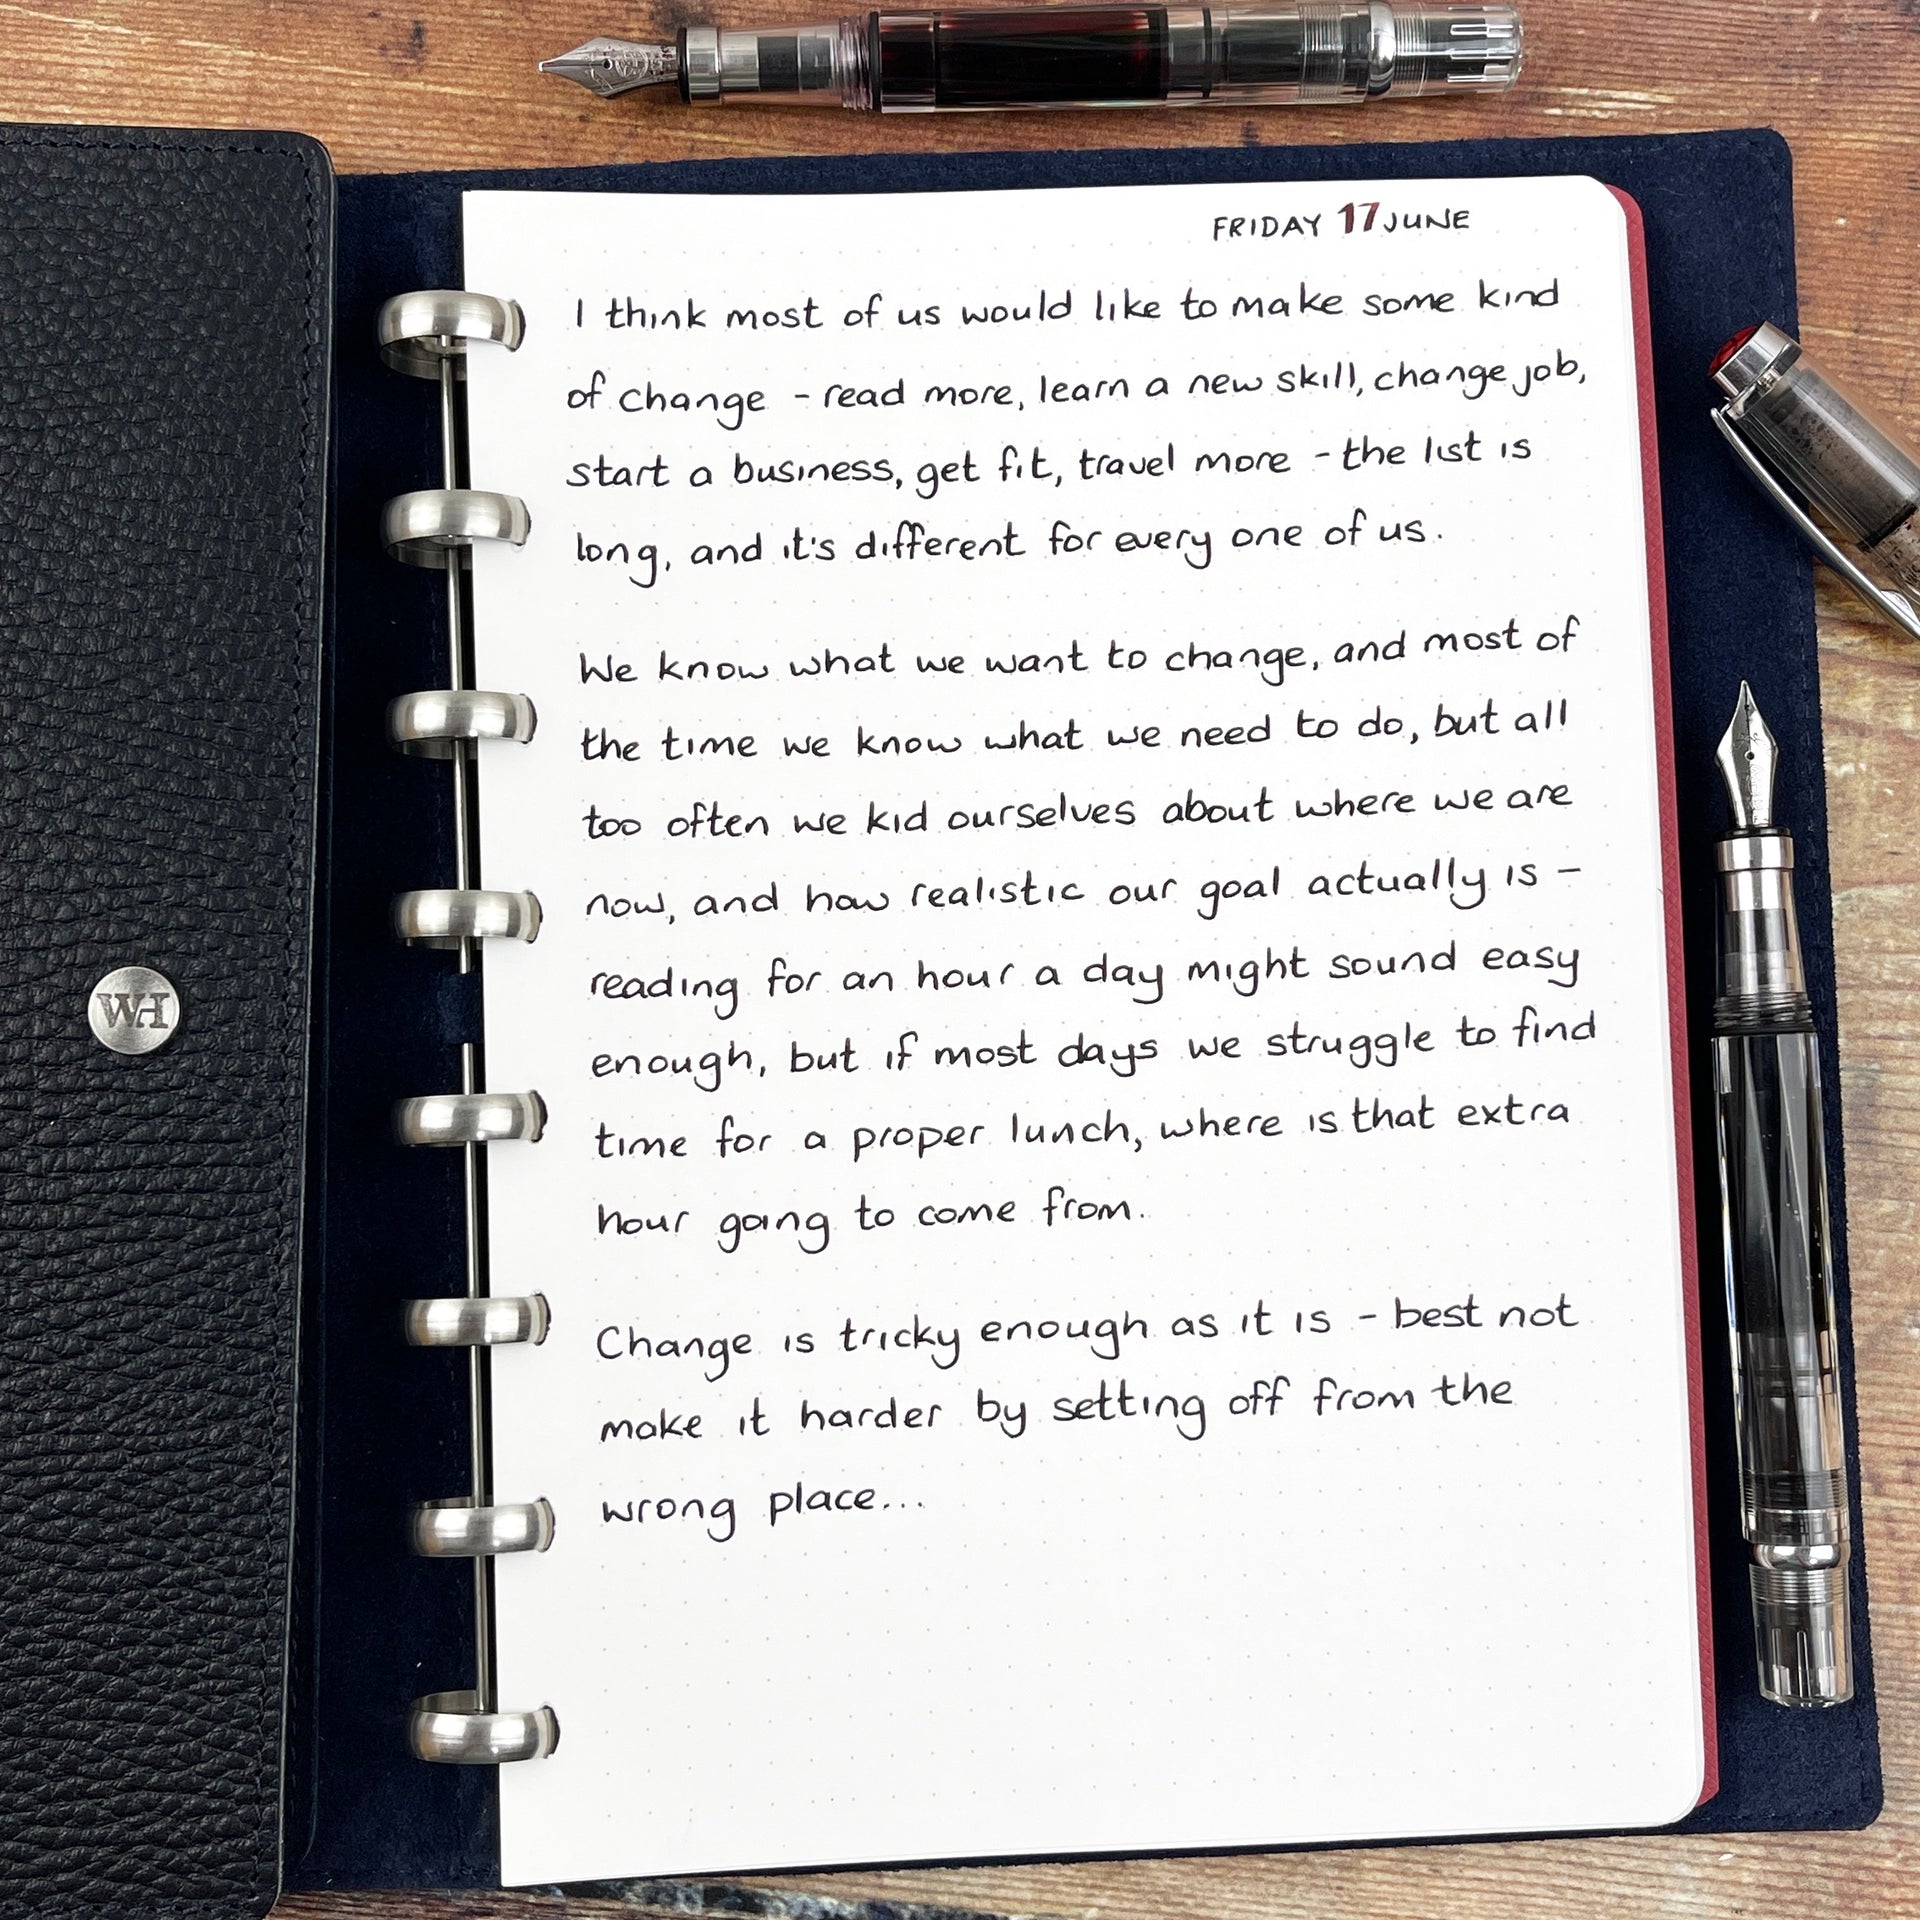 FRIDAY 17 JUNE
I think most of us would like to make some kind
of change - read more, learn a new skill, change job,
start a business, get fit, travel more - the list is
long, and it's different for every one of us.
We know what we want to change, and most of
the time we know what we need to do, but all
too often we kid ourselves about where we are
now, and how realistic our goal actually is -
reading for an hour a day might sound easy
enough, but if most days we struggle to find
time for a proper lunch, where is that extra
hour going to come from.
Change is tricky enough as it is - best not
make it harder by setting off from the
wrong place...
WH